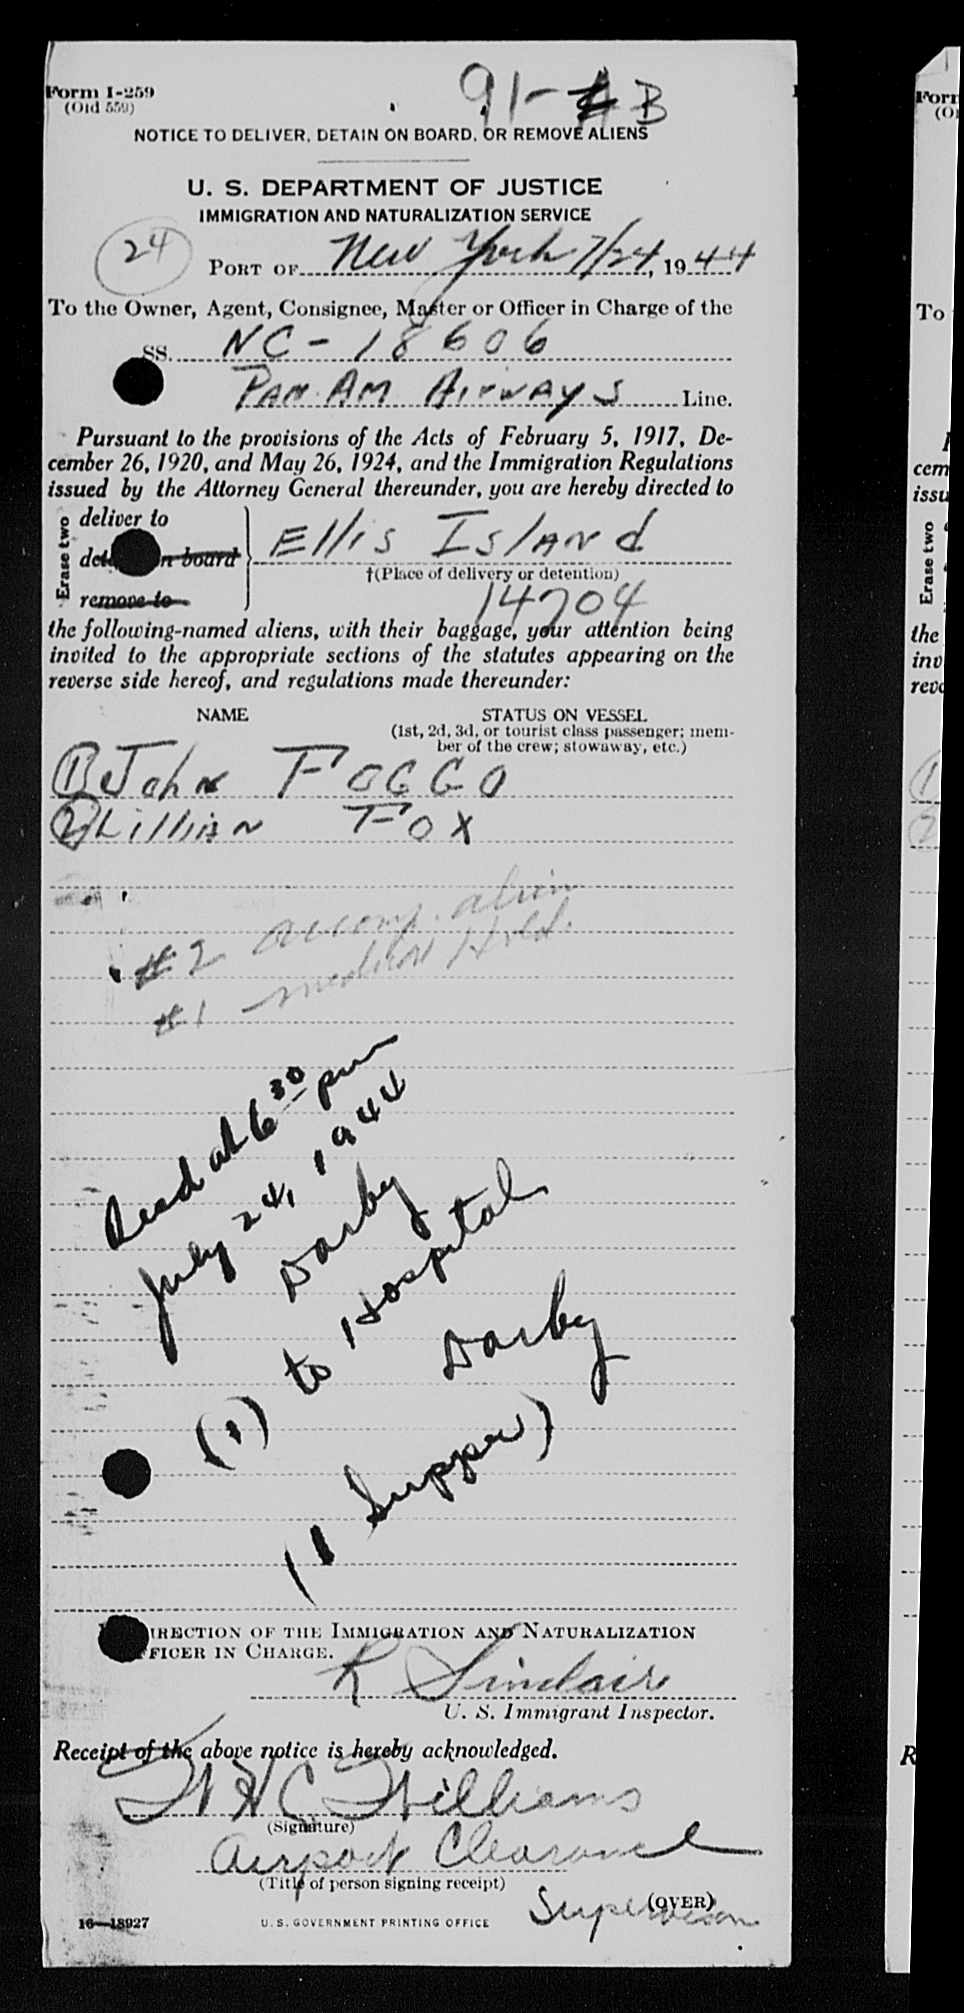 Form I-259
(Old 559)
91-AB
NOTICE TO DELIVER, DETAIN ON BOARD, OR REMOVE ALIENS
U. S. DEPARTMENT OF JUSTICE
IMMIGRATION AND NATURALIZATION SERVICE
24
PORT OF New York 7/24, 1944
To the Owner, Agent, Consignee, Master or Officer in Charge of the
SS. NC-18606
PAN AM AIRWAYS Line.
Pursuant to the provisions of the Acts of February 5, 1917, De-
cember 26, 1920, and May 26, 1924, and the Immigration Regulations
issued by the Attorney General thereunder, you are hereby directed to
Erase two
deliver to
n board
remove to
Ellis Island
†(Place of delivery or detention)
14704
the following-named aliens, with their baggage, your attention being
invited to the appropriate sections of the statutes appearing on the
reverse side hereof, and regulations made thereunder:
NAME
STATUS ON VESSEL
(1st, 2d, 3d, or tourist class passenger; mem-
ber of the crew; stowaway, etc.)
(1) John FOGGO
(2) Lillian FOX
#2 accomp. alien
#1 - medical Hold.
Recd at 6 30 pm
July 24, 1944
Darby
(1) to Hospital
Darby
(1 Supper)
IRECTION OF THE IMMIGRATION AND NATURALIZATION
FICER IN CHARGE.
R Sinclair
U. S. Immigrant Inspector.
Receipt of the above notice is hereby acknowledged.
W H C Williams
(Signature)
Airport Clearance
(Title of person signing receipt)
Supervison
(OVER)
16—18927
U. S. GOVERNMENT PRINTING OFFICE
Form
To
cem
issu
Erase two
the
inv
reve
R